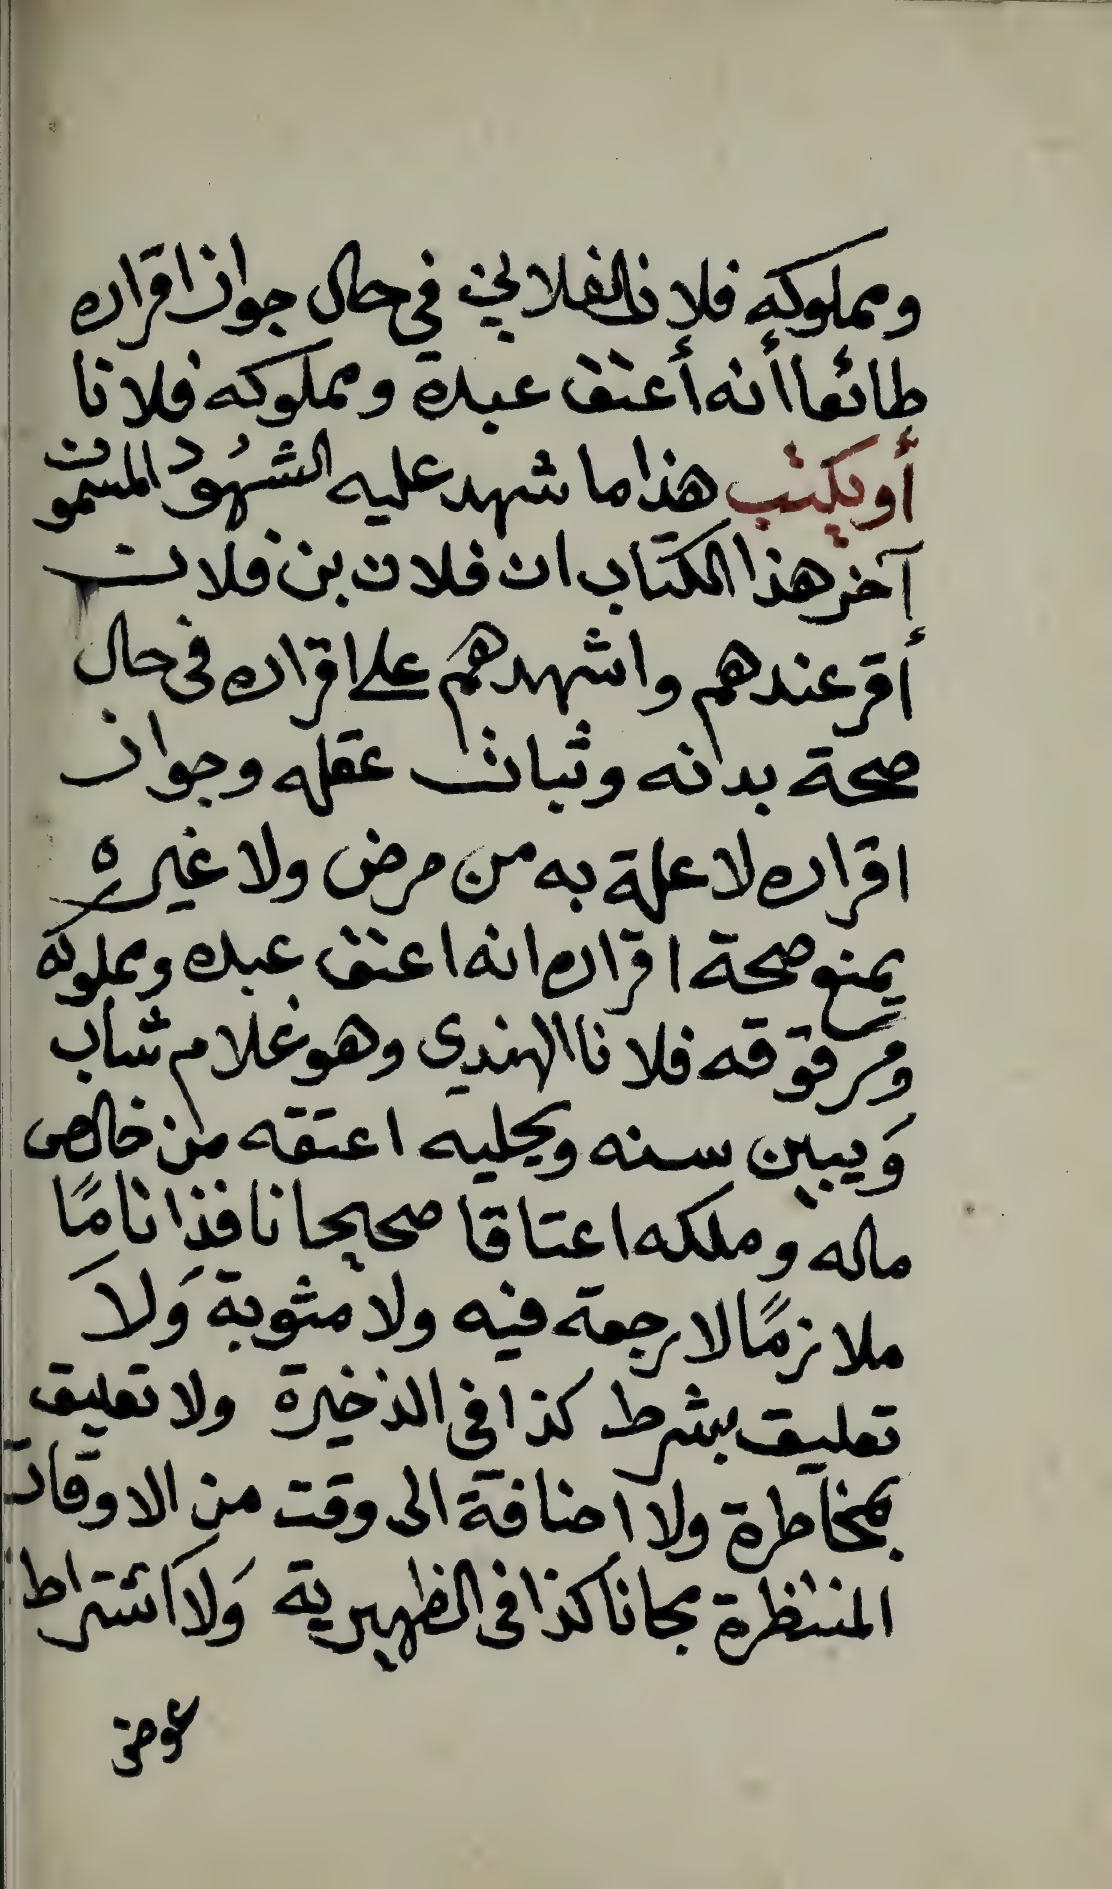 ومملوكه فلانا الفلاني في حال جواز اقراره
طائعا أنه أعتق عبدة ومملوكه فلانا
أو يكتب هذا ما شهد عليه الشهود المسمون
آخر هذا الكتاب ان فلان بن فلان
أقر عندهم واشهدهم على اقراره في حال
صحة بدنه وثبات عقله وجواز
اقراره لا علة به من مرض ولا غيره
يمنع صحة اقراره انه اعتق عبده ومملوكه
ومرقوقه فلانا الهندي وهو غلام شاب
ويبين سنه ويحليه اعتقه من خالص
ماله وملكه اعتاقا صحيحا نافذا تامًا
ملازمًا لا رجعة فيه ولا مثوبة ولا
تعليق بشرط كذا في الذخيرة ولا تعليق
بمخاطرة ولا اضافة الى وقت من الاوقات
المنتظرة مجانا كذا في الظهيرية ولا اشتراط
عوض